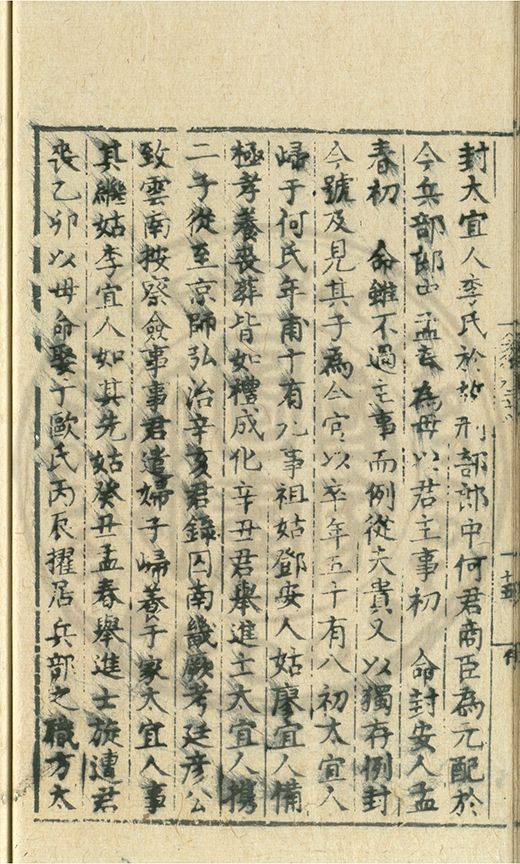 封太宜人李氏於故刑部郎中何君商臣為元配於
今兵部郎中孟春為母以君主事初 命封安人孟
春初 命雖不過主事而例從夫貴又以獨存例封
今號及見其子為今官以卒年五十有八初太宜人
歸于何氏年甫十有九事祖姑鄧安人姑廖宜人備
極孝養喪葬皆如禮成化辛丑君舉進士太宜人携
二子從至京師弘治辛亥君錄囚南畿厥考廷彦公
致雲南按察僉事事君遣婦子歸養于家太宜人事
其繼姑李宜人如其先姑癸丑孟春舉進士旋遭君
喪乙卯以母命娶于歐氏丙辰擢居兵部之職方太